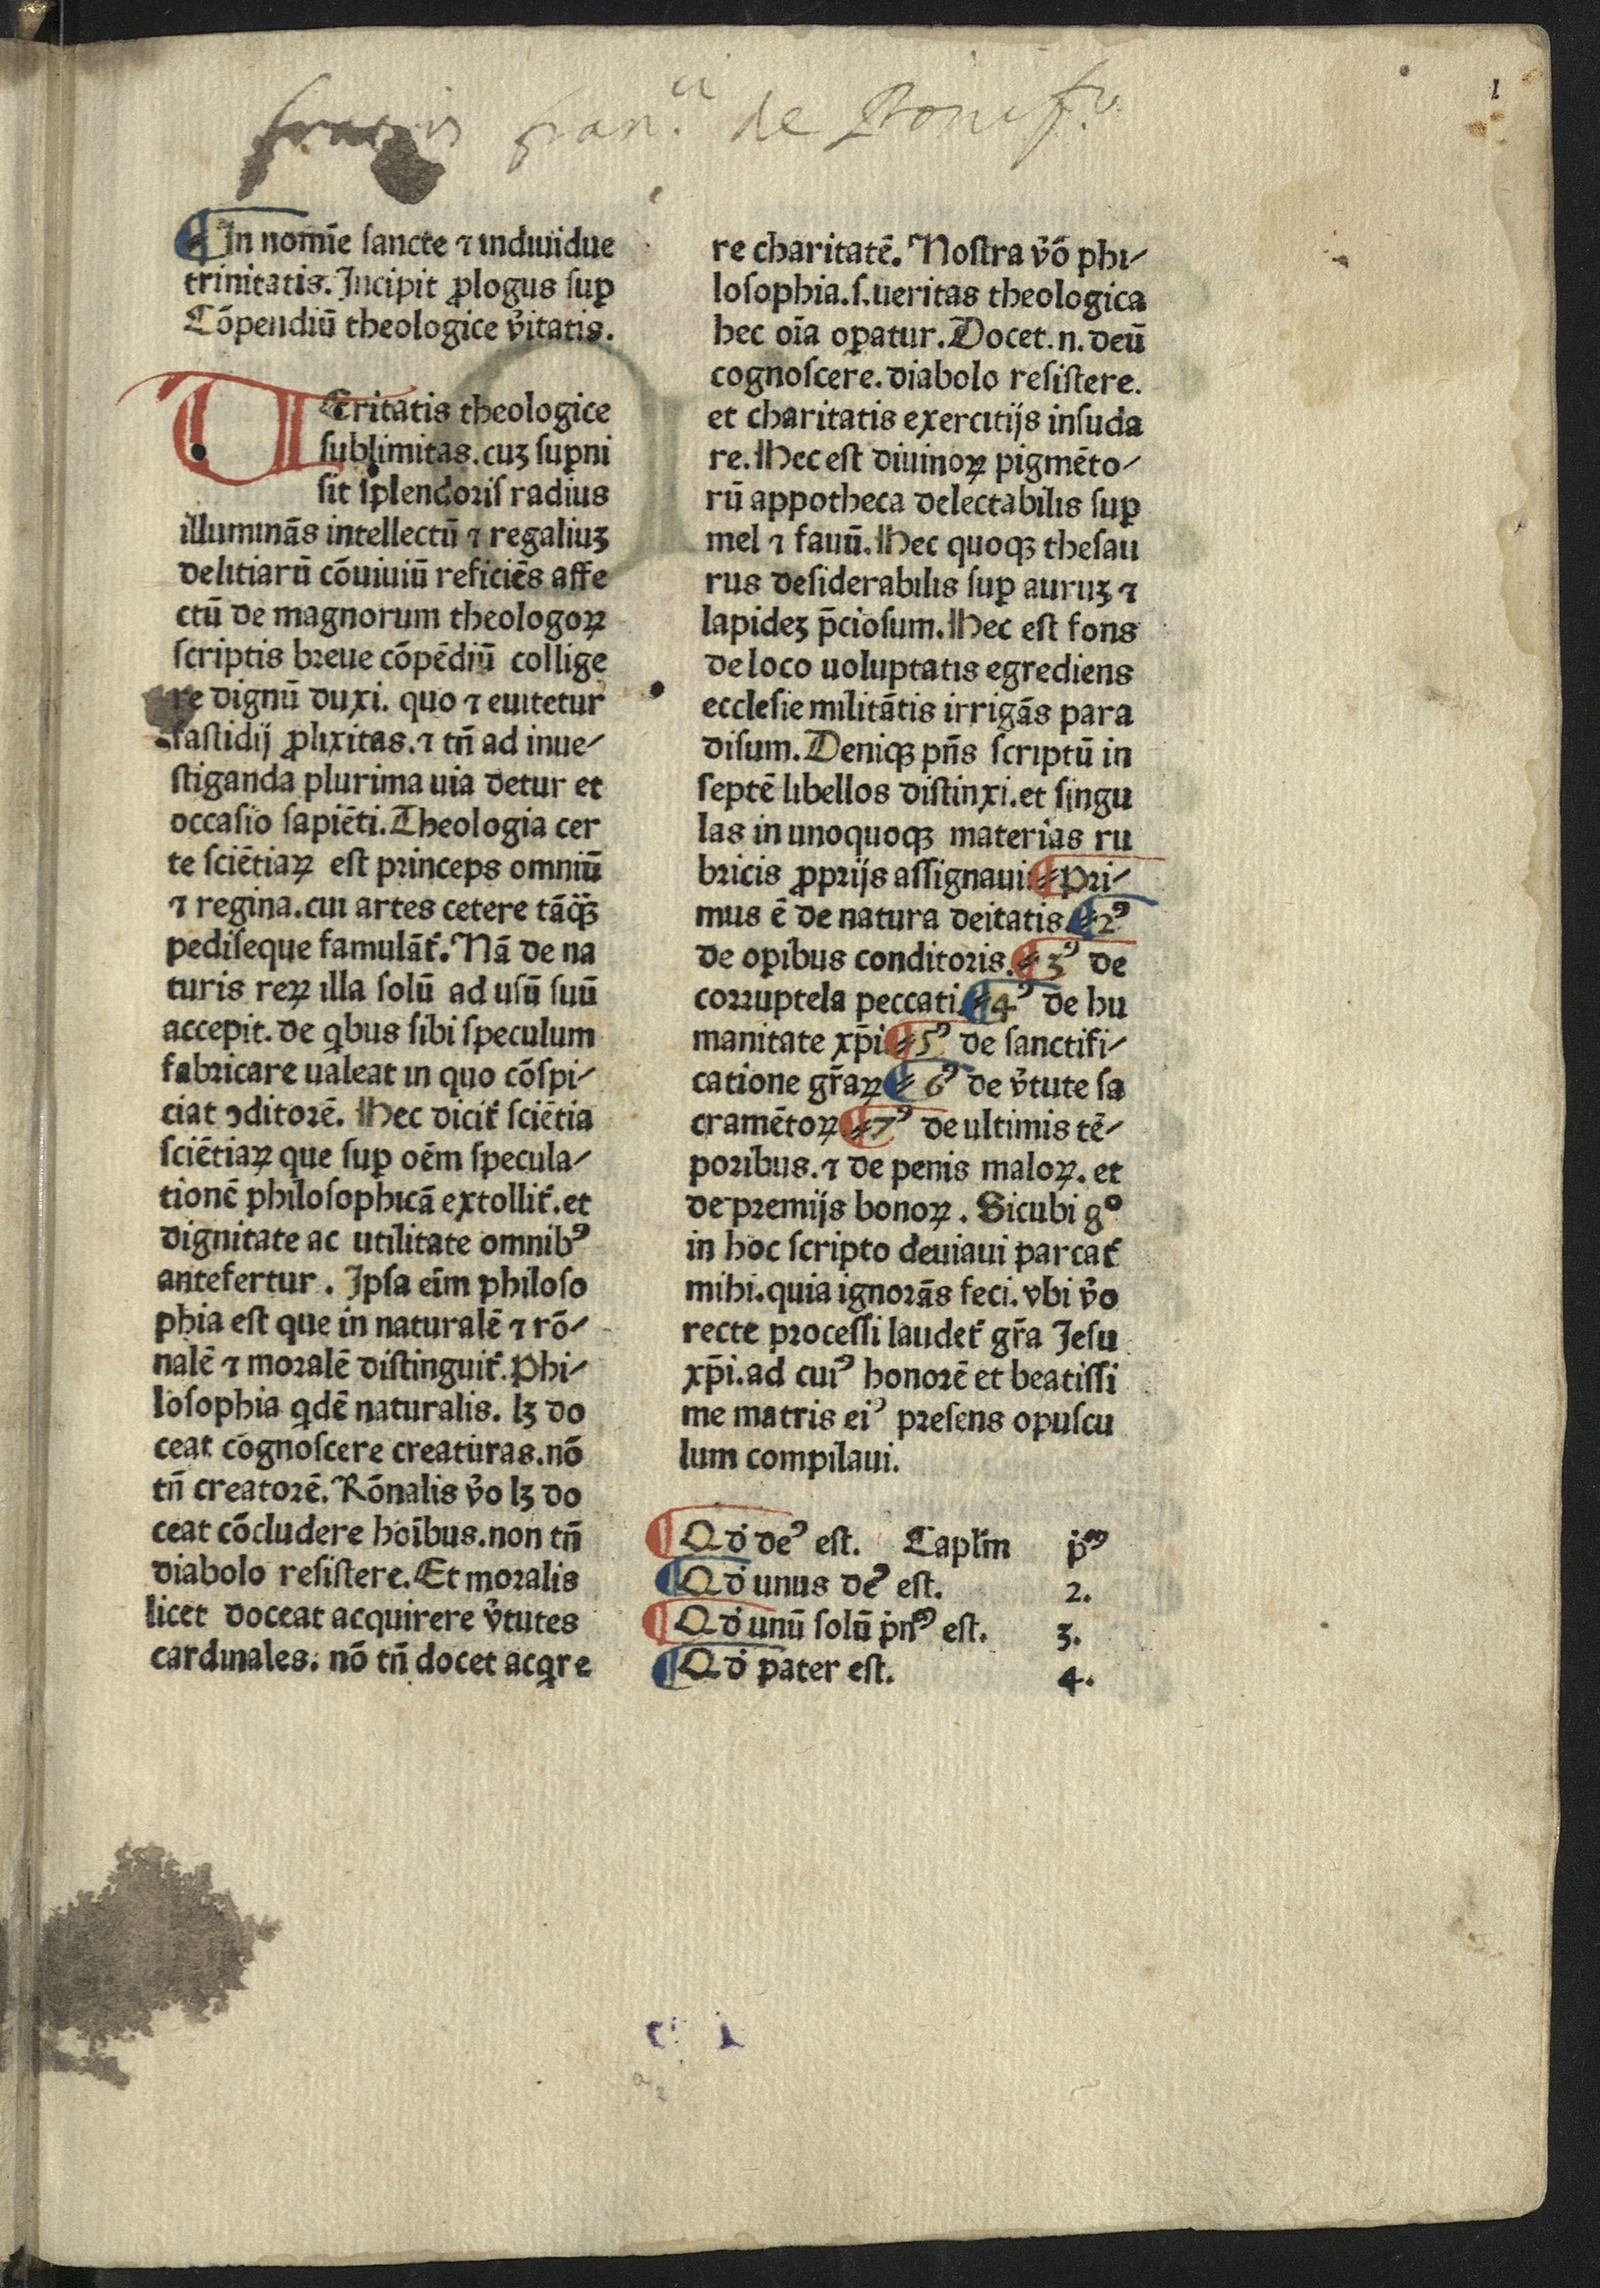 1
de
¶In nomīe sancte ⁊ indiuidue
trinitatis. Incipit ꝓlogus suꝑ
Cōpendiū theologice v̓itatis.
UEritatis theologice
sublimitas. cuꝫ suꝑni
sit splendoris radius
illuminās intellectū ⁊ regaliuꝫ
delitiarū cōuiuiū reficiēs affe
ctū de magnorum theologoꝝ
scriptis breue cōpēdiū collige
re dignū duxi. quo ⁊ euitetur
fastidij ꝓlixitas. ⁊ tn̄ ad inue⸗
stiganda plurima uia detur et
occasio sapiēti. Theologia cer
te sciētiaꝝ est princeps omniū
⁊ regina. cui artes cetere tāꝙ̄
pediseque famulāt᷑. Nā de na
turis reꝝ illa solū ad usū suū
accepit. de qͥbus sibi speculum
fabricare ualeat in quo cōspi⸗
ciat ꝯditorē. Hec dicit᷑ sciētia
sciētiaꝝ que suꝑ oēm specula⸗
tionē philosophicā extollit᷑. et
dignitate ac utilitate omnibꝰ
antefertur. Ipsa eīm philoso
phia est que in naturalē ⁊ rō⸗
nalē ⁊ moralē distinguit᷑. Phi⸗
losophia qͥdē naturalis. lꝫ do
ceat cognoscere creaturas. nō
tn̄ creatorē. Rōnalis v̓o lꝫ do
ceat cōcludere hoībus. non tn̄
diabolo resistere. Et moralis
licet doceat acquirere v̓tutes
cardinales. nō tn̄ docet acqͥre
re charitatē. Nostra v̓ō phi⸗
losophia. s. ueritas theologica
hec oīa oꝑatur. Docet. n. deū
cognoscere. diabolo resistere.
et charitatis exercitijs insuda
re. Hec est diuinoꝝ pigmēto⸗
rū appotheca delectabilis suꝑ
mel ⁊ fauū. Hec quoqꝫ thesau
rus desiderabilis suꝑ auruꝫ ⁊
lapideꝫ p̄ciosum. Hec est fons
de loco uoluptatis egrediens
ecclesie militātis irrigās para
disum. Deniqꝫ pn̄s scriptū in
septē libellos distinxi. et singu
las in unoquoqꝫ materias ru
bricis ꝓprijs assignaui. ¶Pri⸗
mus ē de natura deitatis. ¶2ꝰ
de oꝑibus conditoris. ¶3ꝰ de
corruptela peccati. ¶4ꝰ de hu
manitate xp̄i. ¶5ꝰ de sanctifi⸗
catione gr̄aꝝ ¶6ꝰ de v̓tute sa
cramētoꝝ. ¶7ꝰ de ultimis tē⸗
poribus. ⁊ de penis maloꝝ. et
de premijs bonoꝝ. Sicubi gͦ
in hoc scripto deuiaui parcat᷑
mihi. quia ignorās feci. vbi v̓o
recte processi laudet᷑ gr̄a Jesu
xp̄i. ad cuiꝰ honorē et beatissi
me matris eiꝰ presens opuscu
lum compilaui.
¶Qď deꝰ est. Capl̄m pͫ
¶Qď unus deꝰ est. 2.
¶Qď unū solū pͥnᵐ est. 3.
¶Qď pater est. 4.